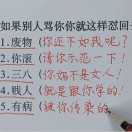 如果别人骂你你就这样怼回去
1.废物(你还不如我呢?)
2.你滚(请你示范一下!)
3.三八(你妈不是女人!)
4.贱人(就是跟你学的!)
5.有病(被你传染的